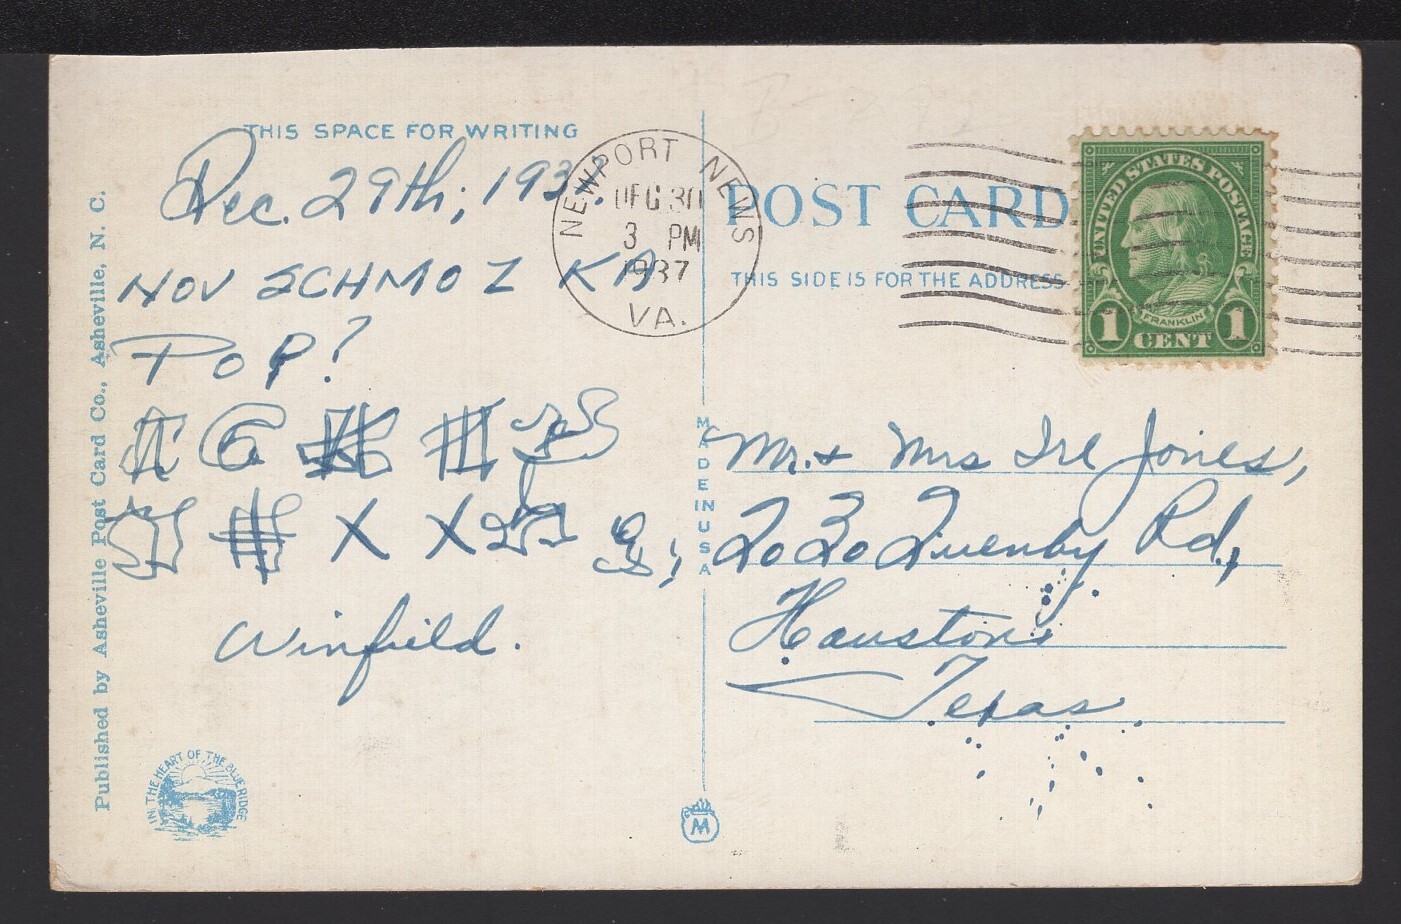 THIS SPACE FOR WRITING
Dec. 29th; 1937.
NOV SCHMOZ KA
POP?
# X X
Winfield.
Published by Asheville Post Card Co., Asheville, N. C.
IN THE HEART OF THE BLUE RIDGE
NEWPORT NEWS
DEC 30
3 PM
1937
VA.
MADE IN U S A
M
POST CARD
THIS SIDE IS FOR THE ADDRESS
UNITED STATES POSTAGE
FRANKLIN
1 CENT 1
Mr. & Mrs Ire Jones,
2030 Quenby Rd.,
Houston
Texas.